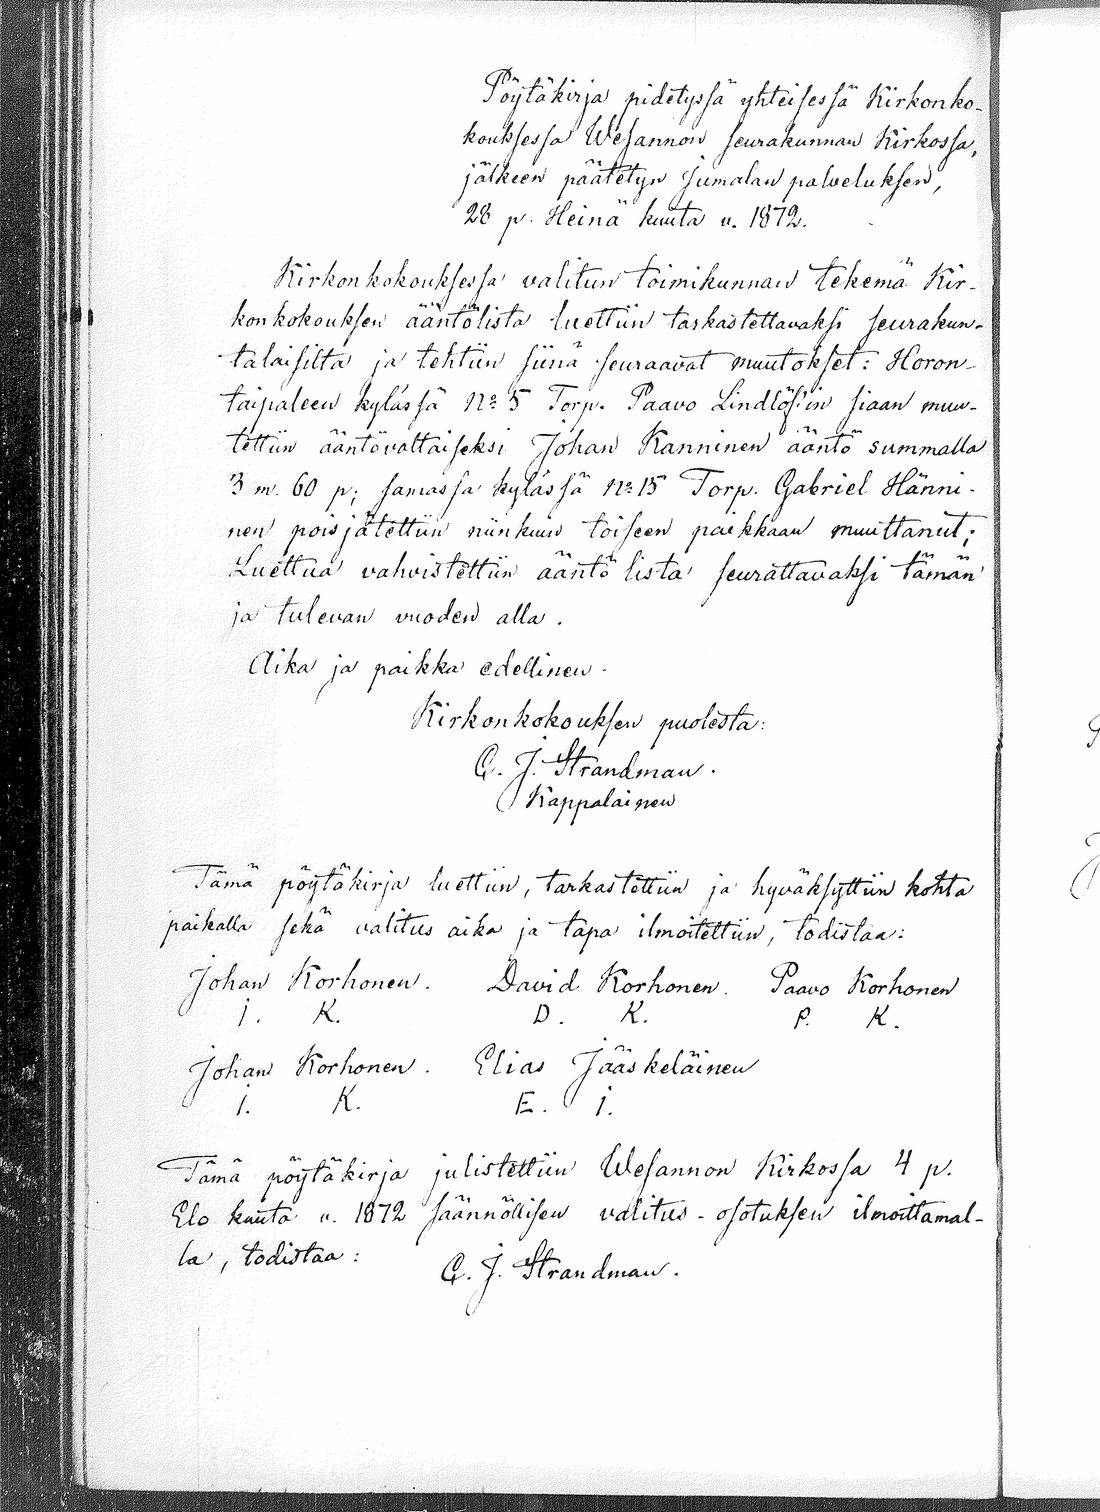 Pöytäkirja pidetyssä yhteisessä Kirkonko-
kouksessa Wesannon seurakunnan Kirkossa,
jälkeen päätetyn Jumalan palveluksen,
28 p. Heinä kuuta v. 1872.
Kirkonkokouksessa valitun toimikunnan tekemä Kir-
konkokouksen ääntölista luettiin tarkastettavaksi seurakun-
talaisilta ja tehtiin siinä seuraavat muutokset: Horon-
taipaleen kylässä No 5 Torp. Paavo Lindlöf'in siaan muu-
tettiin ääntövaltaiseksi Johan Kanninen ääntö summalla
3 m. 60 p; samassa kylässä No 15 Torp. Gabriel Hänni-
nen poisjätettiin niinkuin toiseen paikkaan muuttanut;
Luettua vahvistettiin ääntö lista seurattavaksi tämän
ja tulevan vuoden alla.
Aika ja paikka edellinen.
Kirkonkokouksen puolesta:
C. J. Strandman.
Kappalainen
Tämä pöytäkirja luettiin, tarkastettiin ja hyväksyttiin kohta
paikalla sekä valitus aika ja tapa ilmoitettiin, todistaa:
Johan Korhonen. David Korhonen. Paavo Korhonen
J. K. D. K. P. K.
Johan Korhonen. Elias Jääskeläinen
J. K. E. J.
Tämä pöytäkirja julistettiin Wesannon Kirkossa 4 p.
Elo kuuta v. 1872 säännöllisen valitus-osotuksen ilmoittamal-
la, todistaa:
C. J. Strandman.